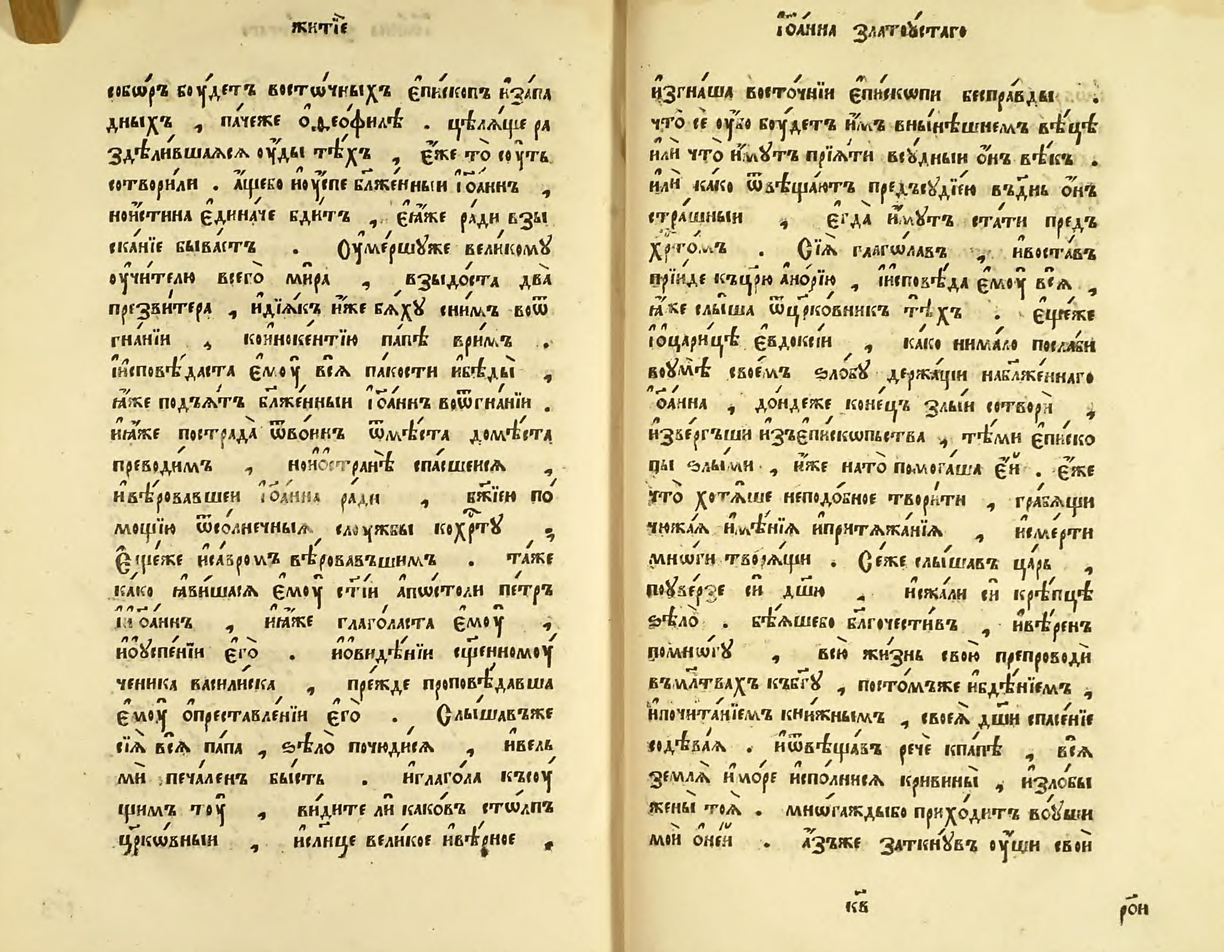 житїе
собѡ́ръ бꙋ́детъ восто́чныхъ є҆пи́скопъ и҆за́па
дныхъ , па́чеже ѻ҆ѳео́филѣ . цѣлѧ́ще ра
здѣли́вшаѧсѧ ᲂу҆́ды тѣ́хъ , є҆́же то̀ сꙋ́ть
сотвори́ли . а҆́щебо и҆ᲂу҆́спе бл҃же́нныи і҆ѡа́ннъ ,
нои҆́стина є҆дина́че бди́тъ , є҆ѧ́же ра́ди взы
ска́нїе быва́етъ . Оу҆ме́ршꙋже вели́комꙋ
ᲂу҆чи́телю всего̀ ми́ра , взыдо́ста два̀
презви́тера , и҆дїѧ́къ и҆́же бѧ́хꙋ сни́мъ воѿ
гна́нїи , кои҆ноке́нтїю па́пѣ ври́мъ .
и҆исповѣ́даста є҆мꙋ̀ всѧ̀ па́кости и҆бѣ́ды ,
ꙗ҆́же подъѧ́тъ бл҃же́нныи і҆ѡа́ннъ воѿгна́нїи .
и҆ꙗ҆́же пострада̀ ѿво́инъ ѿмѣ́ста домѣ́ста
преводи́мъ , нои҆ѻ҆стра́нѣ спа́сшеисѧ ,
и҆вѣ́ровавшеи і҆ѡа́нна ра́ди , бж҃їею по́
мощїю ѿсо́лнечныѧ слꙋ́жбы кохрⷭ҇тꙋ̀ ,
Е҆ще́же и҆са́вромъ вѣ́ровавъшимъ . та́же
ка́ко ꙗ҆ви́шасѧ є҆мꙋ̀ ст҃і́и а҆пⷭ҇толи пе́тръ
и҆і҆ѡа́ннъ , и҆ꙗ҆́же глаго́ласта є҆мꙋ̀ ,
и҆ѻ҆ᲂу҆спе́нїи є҆гѡ̀ . и҆ѻ҆ви́дѣнїи сщ҃е́нномꙋ
ченика васили́ска , пре́жде проповѣ́давша
є҆мꙋ̀ ѻ҆преставле́нїи є҆гѡ̀ . Слы́шавъже
сїѧ̀ всѧ̀ па́па , ѕѣлѡ̀ почюди́сѧ , и҆вель
мѝ печа́ленъ бы́сть . и҆глаго́ла късꙋ́
щимъ тꙋ̀ , ви́дите ли како́въ сто́лпъ
цр҃ко́вныи , и҆сл҃нце вели́кое и҆вѣ́рное ,
і҆ѡа́нна златоꙋ́стаго
и҆згна́ша восто́чнїи є҆пи́скѡпи беспра́вды .
что̀ се ᲂу҆̀бо бꙋ́детъ и҆̀мъ вны́нѣшнемъ вѣ́цѣ
и҆лѝ что̀ и҆́мꙋтъ прїѧ́ти всꙋ́дныи ѻ҆́нъ вѣ́къ .
и҆лѝ ка́ко ѿвѣща́ютъ предъсꙋдїе́ю въдн҃ь ѻ҆́нъ
стра́шныи , є҆гда̀ и҆́мꙋтъ ста́ти предъ
хрⷭ҇то́мъ . Сїѧ̀ глаго́лавъ , и҆воста́въ
прїи́де къцр҃ю̀ а҆но́рїю , и҆исповѣ́да є҆мꙋ̀ всѧ̀ ,
ꙗ҆́же слы́ша ѿцр҃ко́вникъ тѣ́хъ . Е҆ще́же
і҆ѻ҆цари́цѣ є҆вдоксі́и , ка́ко нима́ло посла́би
вᲂу҆мѣ̀ свое́мъ ѕло́бꙋ держа́щи набл҃же́ннаго
і҆ѡа́нна , до́ндеже коне́цъ злы́и сотворѝ ,
и҆зве́ргъши и҆зъє҆пи́скопьства , тѣ́ми є҆пи́ско
пы ѕлы́ми , и҆́же нато̀ помога́ша є҆́и . є҆́же
что̀ хотѧ́ше неподо́бное твори́ти , гра́бѧщи
чюжа́ѧ и҆мѣ́нїѧ и҆притѧжа́нїѧ , и҆сме́рти
мно́ги творѧ́щи . Се́же слы́шавъ ца́рь ,
поꙋве́рзе си дш҃ю , и҆сжа́ли си крѣ́пцѣ
ѕѣлѡ̀ . бѣ́ѧшебо бл҃гочести́въ , и҆вѣ́ренъ
помно́гꙋ , всю̀ жи́знь свою̀ препроводѝ
въмл҃твахъ къбг҃ꙋ , посто́мъже и҆бдѣ́нїемъ ,
и҆почита́нїемъ кни́жнымъ , своеѧ̀ дш҃и спасе́нїе
содѣ́ваѧ . и҆ѿвѣща́въ речѐ кпа́пѣ , всѧ̀
землѧ̀ и҆мо́ре и҆спо́лнисѧ кривины̀ , и҆зло́бы
жены̀ тоѧ̀ . мно́гаждыбо прихо́дитъ воꙋ́ши
мои̑ ѻ҆не́й . а҆́зъже заткнꙋ́въ ᲂу҆́ши свои̑
к҃в
ро҃и